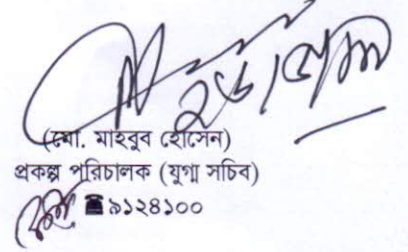 (মো. মাহবুব হোসেন)
প্রকল্প পরিচালক (যুগ্ম সচিব)
☎৯১২৪১০০